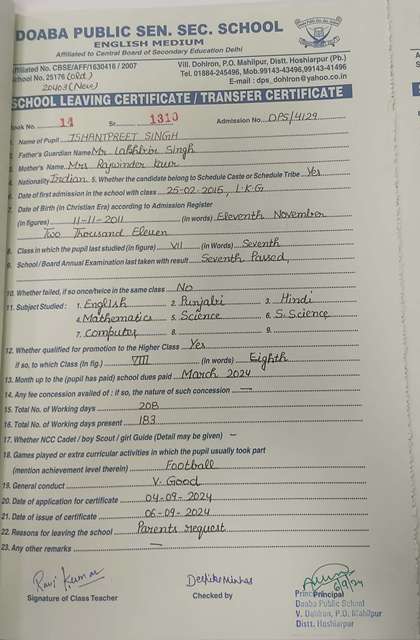 DOABA PUBLIC SEN. SEC. SCHOOL
ENGLISH MEDIUM
Affiliated to Central Board of Secondary Education Delhi
Affiliated No. CBSE/AFF/1630416 / 2007
School No. 25176 (old)
20403 (New)
Vill. Dohlron, P.O. Mahilpur, Distt. Hoshiarpur (Pb.)
Tel. 01884-245496, Mob:99143-43496,99141-41496
E-mail : dps_dohlron@yahoo.co.in
SCHOOL LEAVING CERTIFICATE / TRANSFER CERTIFICATE
Book No. 14 Sr. 1310 Admission No. DPS/4129
1. Name of Pupil ISHANTPREET SINGH
2. Father's/Guardian Name Mr Lakhbir Singh
3. Mother's Name Mrs Rajwinder Kaur
4. Nationality Indian 5. Whether the candidate belong to Schedule Caste or Schedule Tribe Yes
6. Date of first admission in the school with class 25-02-2015, L.K.G
7. Date of Birth (in Christian Era) according to Admission Register
(in figures) 11-11-2011 (in words) Eleventh November
Two Thousand Eleven
8. Class in which the pupil last studied (in figure) VII (in Words) Seventh
9. School / Board Annual Examination last taken with result Seventh Passed,
10. Whether failed, if so once/twice in the same class No
11. Subject Studied : 1. English 2. Punjabi 3. Hindi
4. Mathematics 5. Science 6. S. Science
7. Computer 8. 9.
12. Whether qualified for promotion to the Higher Class Yes
If so, to which Class (in fig.) VIII (in words) Eighth
13. Month up to the (pupil has paid) school dues paid March 2024
14. Any fee concession availed of : if so, the nature of such concession —
15. Total No. of Working days 208
16. Total No. of Working days present 183
17. Whether NCC Cadet / boy Scout / girl Guide (Detail may be given) —
18. Games played or extra curricular activities in which the pupil usually took part
(mention achievement level therein) Football
19. General conduct V. Good
20. Date of application for certificate 04-09-2024
21. Date of issue of certificate 06-09-2024
22. Reasons for leaving the school Parents request
23. Any other remarks —
Ravi Kumar
Signature of Class Teacher
Deepika Minhas
Checked by
6/9/24
Principal
Doaba Public School
V. Dohlron, P.O. Mahilpur
Distt. Hoshiarpur